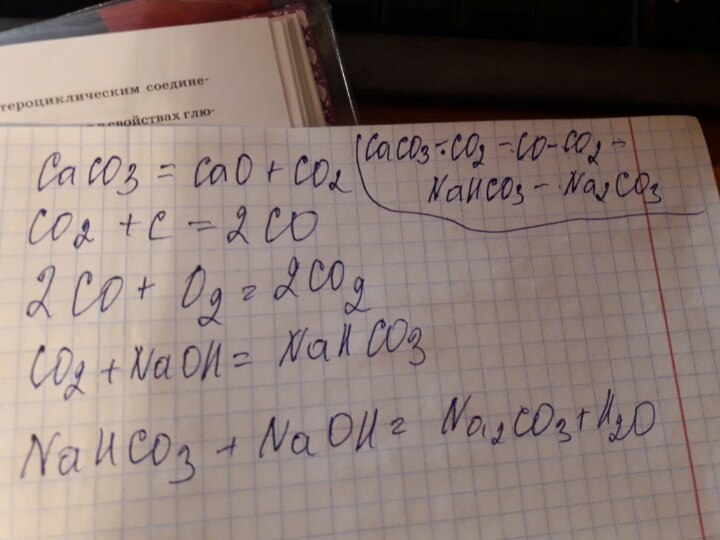 тероциклическим соедине-
свойствах глю-
CaCO3 = CaO + CO2
CaCO3 - CO2 - CO - CO2 -
NaHCO3 - Na2CO3
CO2 + C = 2CO
2CO + O2 = 2CO2
CO2 + NaOH = NaHCO3
NaHCO3 + NaOH = Na2CO3 + H2O